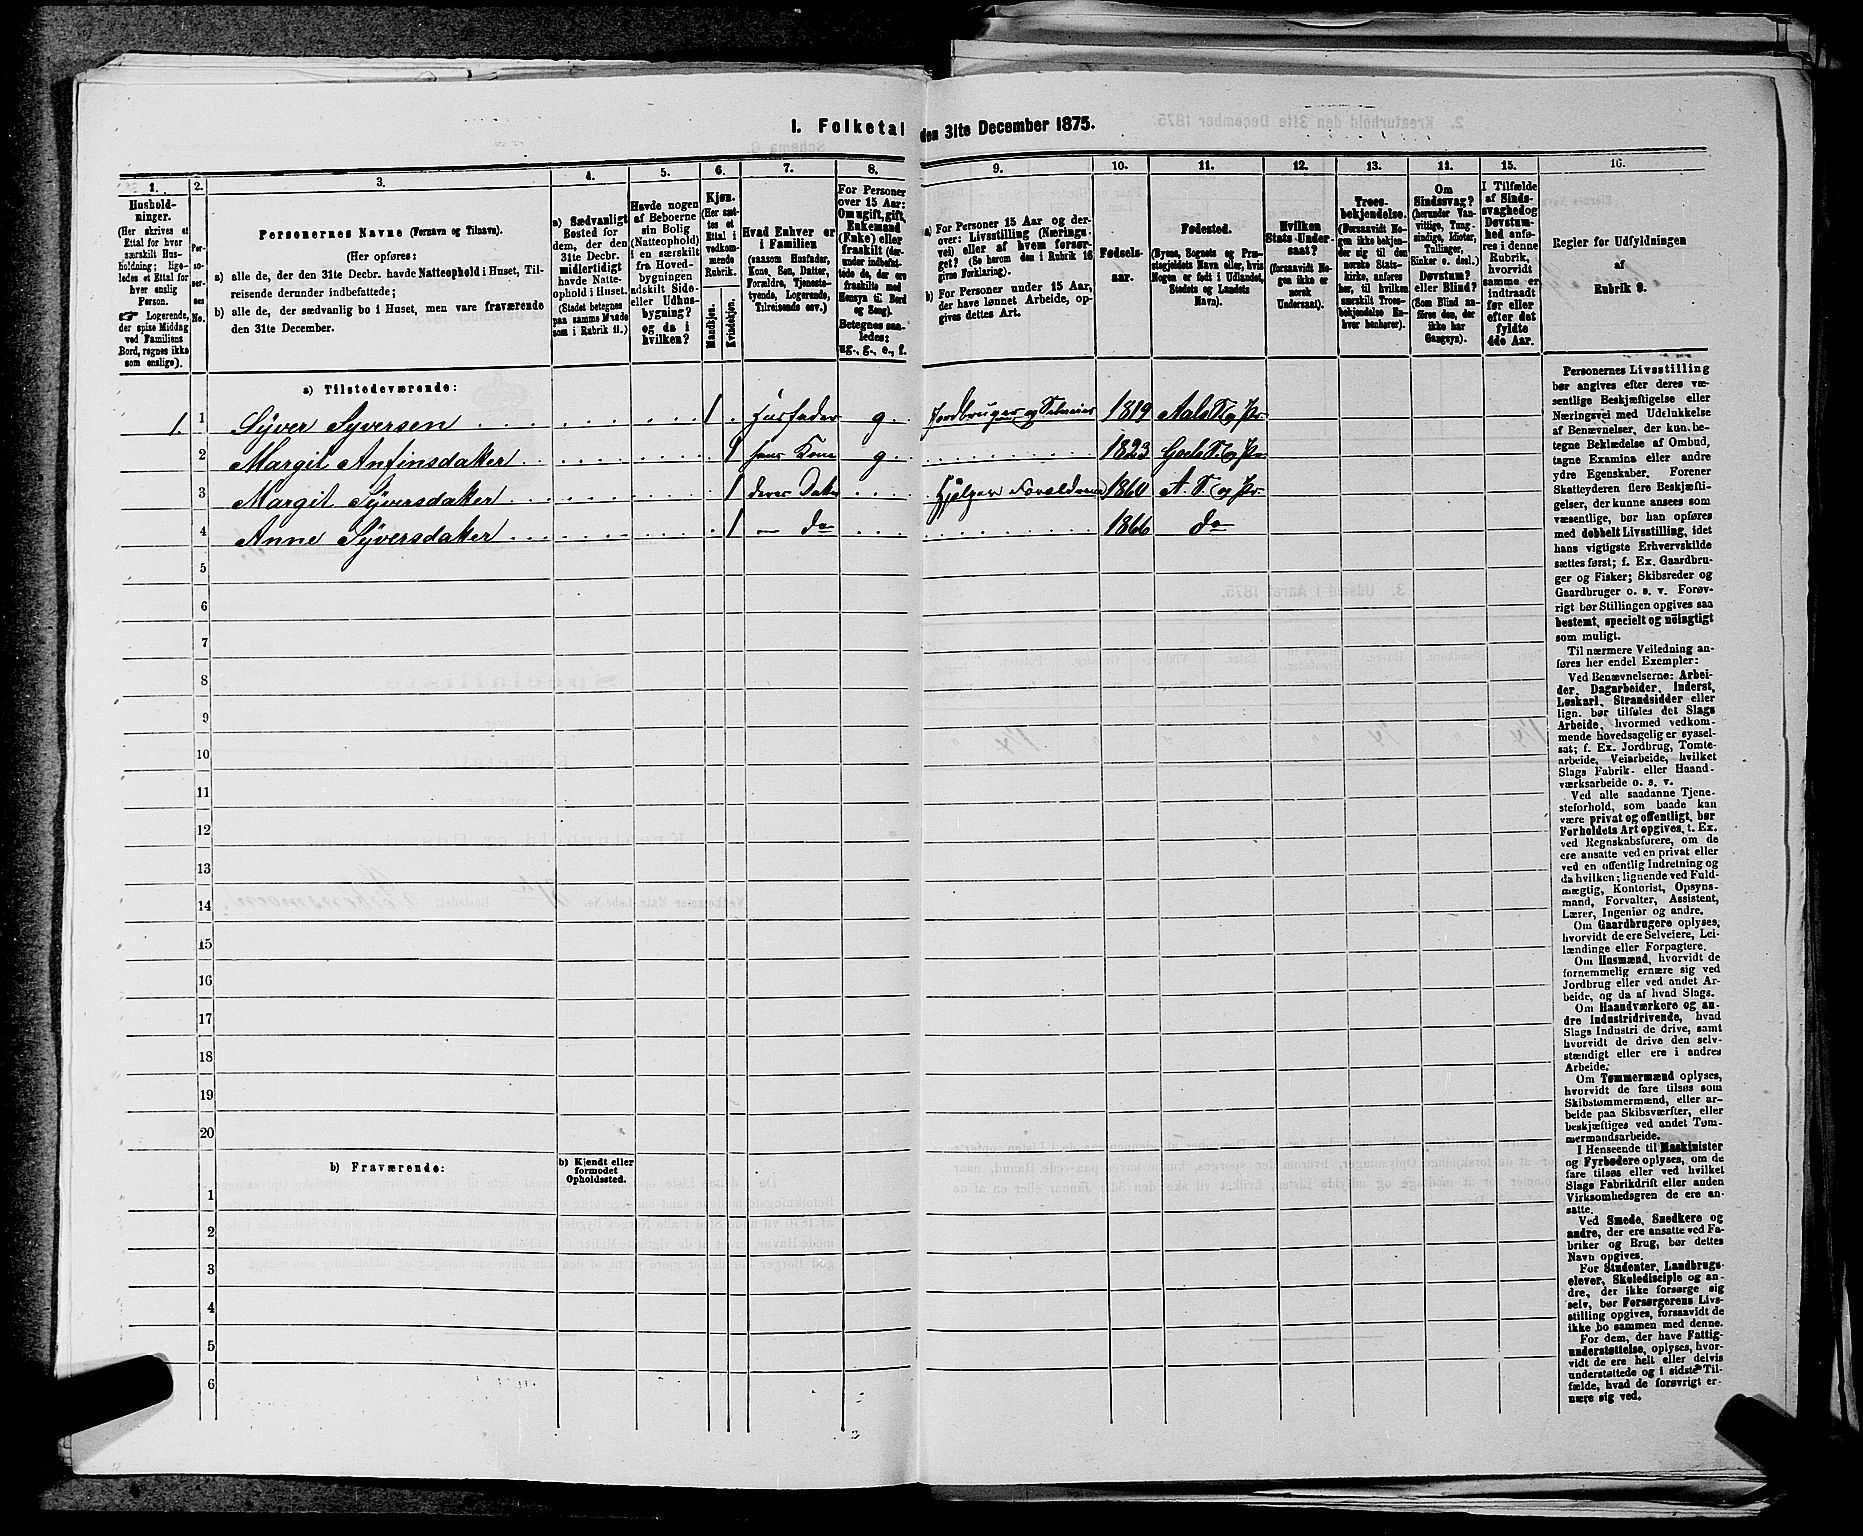 1. Folketal den 31te December 1875.
1.
Husholdninger.
(Her skrives et
Ettal for hver
særskilt Husholdning; ligeledes et Ettal for
hver enslig
Person.
☛ Logerende,
der spise Middag
ved Familiens
Bord, regnes ikke
som enslige).
2.
Personernes
No.
3.
Personernes Navne (Fornavn og Tilnavn).
(Her opføres:
a) alle de, der den 31te Decbr. havde Natteophold i Huset, Tilreisende derunder indbefattede;
b) alle de, der sædvanlig bo i Huset, men vare fraværende
den 31te December.
4.
a) Sædvanligt
Bosted for
dem, der den
31te Decbr.
midlertidigt
havde Natteophold i Huset.
(Stedet betegnes
paa samme Maade
som i Rubrik 11.)
5.
Havde nogen
af Beboerne
sin Bolig
(Natteophold)
i en særskilt
fra Hovedbygningen
adskilt Side- eller Udhusbygning?
og da i
hvilken?
6.
Kjøn.
(Her sættes et
Ettal i
vedkommende
Rubrik.
Mandkjøn.
Kvindekjøn.
7.
Hvad Enhver er
i Familien
(saasom Husfader,
Kone, Søn, Datter,
Forældre, Tjenestetyende, Logerende,
Tilreisende osv.)
8.
For Personer
over 15 Aar:
Om ugift, gift,
Enkemand
(Enke) eller
fraskilt (derunder indbefattede de, der ere
fraskilte med
Hensyn til Bord
og Seng).
Betegnes saaledes:
ug., g., e., f.
9.
a) For Personer 15 Aar og derover: Livsstilling (Næringsvei) eller af hvem forsørget? (Se herom den i Rubrik 16
givne Forklaring).
b) For Personer under 15 Aar,
der have lønnet Arbeide, opgives dettes Art.
10.
Fødselsaar.
11.
Fødested.
(Byens, Sognets og Præstegjeldets Navn eller, hvis
Nogen er født i Udlandet,
Stedets og Landets
Navn).
12.
Hvilken
Stats Undersaat?
(forsaavidt Nogen ikke er
norsk
Undersaat).
13.
Troesbekjendelse.
(Forsaavidt Nogen ikke bekjender sig til den
norske Statskirke, anføres
her, til hvilken
særskilt Troesbekjendelse Enhver henhører).
14.
Om
Sindssvag?
(herunder Vanvittige, Tungsindige, Idioter,
Tullinger,
Sinker o. desl.)
Døvstum?
eller Blind?
(Som Blind anføres den, der
ikke har
Gangsyn).
15.
I Tilfælde
af Sindssvaghed og
Døvstumhed anføres i denne
Rubrik,
hvorvidt
samme er
indtraadt
før eller
efter det
fyldte
4de Aar.
16.
Regler for Udfyldningen
af
Rubrik 9.
a) Tilstedeværende:
1. 1 Syver Syversen 1 Husfader g. Jordbruger og Selveier 1819 Aals S. og Pr.
2 Margit Anfinsdatter 1 hans Kone g. 1823 Gols S. og Pr.
3 Margit Syversdatter 1 deres Datter Hjelper Forældrene 1860 A. S. og Pr.
4 Anne Syversdatter 1 — do 1866 do
5
6
7
8
9
10
11
12
13
14
15
16
17
18
19
20
b) Fraværende:
b) Kjendt eller
formodet
Opholdssted.
1
2
3
4
5
6
Personernes Livsstilling
bør angives efter deres væsentlige Beskjæftigelse eller
Næringsvei med Udelukkelse
af Benævnelser, der kun betegne Beklædelse af Ombud,
tagne Examina eller andre
ydre Egenskaber. Forener
Skatteyderen flere Beskjæftigelser, der kunne ansees som
væsentlige, bør han opføres
med dobbelt Livsstilling, idet
hans vigtigste Erhvervskilde
sættes først; f. Ex. Gaardbruger og Fisker; Skibsreder og
Gaardbruger o. s. v. Forøvrigt bør Stillingen opgives saa
bestemt, specielt og nöiagtigt
som muligt.
Til nærmere Veiledning anføres her endel Exempler:
Ved Benævnelserne: Arbeider, Dagarbeider, Inderst,
Løskarl, Strandsidder eller
lign. bør tilføies det Slags
Arbeide, hvormed vedkommende hovedsagelig er sysselsat; f. Ex. Jordbrug, Tomtearbeide, Veiarbeide, hvilket
Slags Fabrik- eller Haandværksarbeide o. s. v.
Ved alle saadanne Tjenesteforhold, som baade kan
være privat og offentligt, bør
Forholdets Art opgives, t. Ex.
ved Regnskabsførere, om de
ere ansatte ved en privat eller
ved en offentlig Indretning og
da hvilken; lignende ved Fuldmægtig, Kontorist, Opsynsmand, Forvalter, Assistent,
Lærer, Ingeniør og andre.
Om Gaardbrugere oplyses,
hvorvidt de ere Selveiere, Leilændinge eller Forpagtere.
Om Husmænd, hvorvidt de
fornemmelig ernære sig ved
Jordbrug eller ved andet Arbeide, og da af hvad Slags.
Om Haandværkere og andre Industridrivende, hvad
Slags Industri de drive, samt
hvorvidt de drive den selvstændigt eller ere i andres
Arbeide.
Om Tømmermænd oplyses,
hvorvidt de fare tilsøs som
Skibstømmermænd, eller arbeide paa Skibsværfter, eller
beskjæftiges ved andet Tømmermandsarbeide.
I Henseende til Maskinister
og Fyrbødere oplyses, om de
fare tilsøs eller ved hvilket
Slags Fabrikdrift eller anden
Virksomhedsgren de ere ansatte.
Ved Smede, Snedkere og
andre, der ere ansatte ved Fabriker og Brug, bør dettes
Navn opgives.
For Studenter, Landbrugselever, Skoledisciple og andre, der ikke forsørge sig
selv, bør Forsørgerens Livsstilling opgives, forsaavidt de
ikke bo sammen med denne.
For dem, der have Fattigunderstøttelse, oplyses, hvorvidt de ere helt eller delvis
understøttede og i sidste Tilfælde, hvad de forøvrigt ernære sig ved.